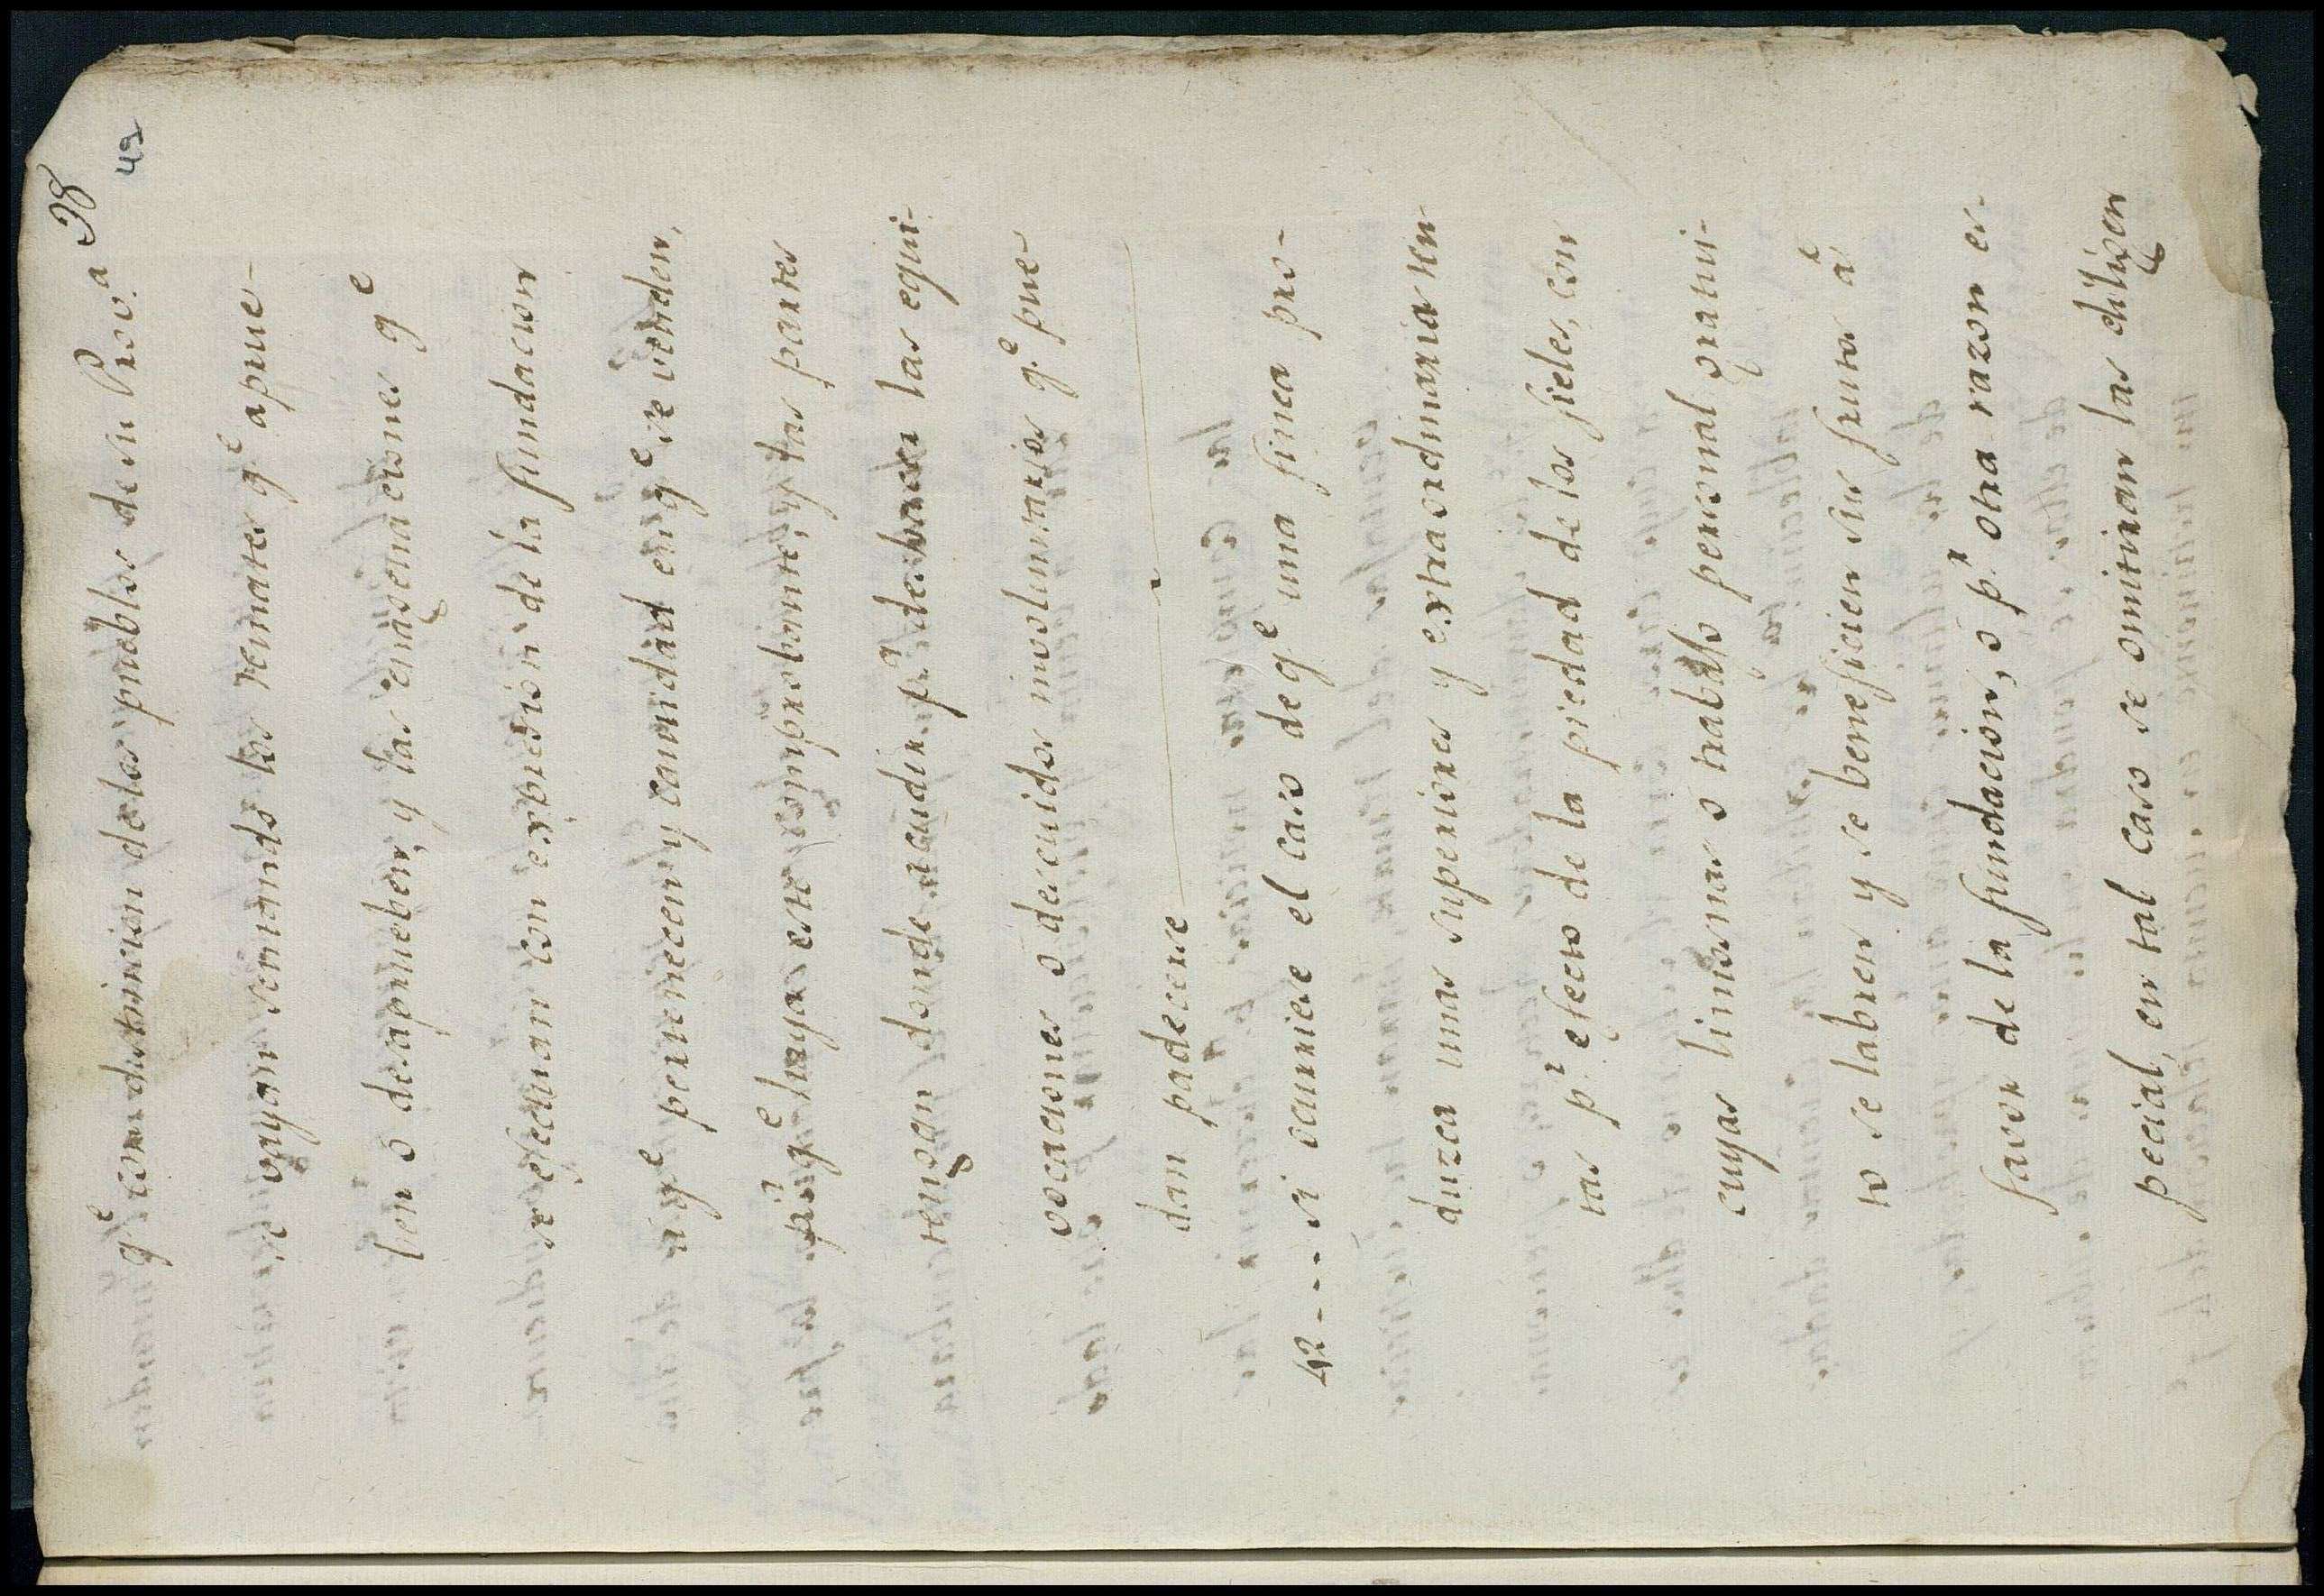 38
49
q.e con distincion de los pueblos de su Prov.a
se vayan sentando los remates q.e aprue-
ben o desaprueben, y las enagenaciones q.e
se efectuan con expresion de la fundacion
a q.e pertenecen y cantidad en q.e se venden,
p.a q.e haya este comprobante, y las partes
tengan donde acudir p.a deshacer las equi-
vocaciones o descuidos involuntarios q.e pue-
dan padecerse
42 - - - si ocurriese el caso de q.e una finca pro-
duzca unas superiores y extraordinarias ren
tas p.r efecto de la piedad de los fieles, con
cuyas limosnas o trabajo personal gratui-
to se labren y se beneficien sus frutos á
favor de la fundacion, o p.r otra razon es-
pecial, en tal caso se omitiran las diligen